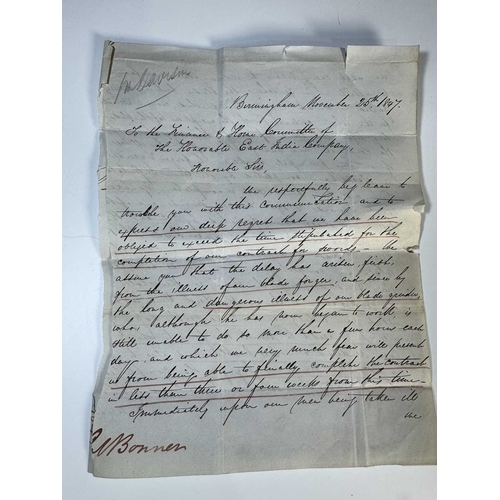 Birmingham November 25th 1847.
To the Finance & Home Committee of
The Honorable East India Company,
Honorable Sirs,
We respectfully beg leave to
trouble you with this communication and to
express our deep regret that we have been
obliged to exceed the time stipulated for the
completion of our contract for swords - We
assure you that the delay has arisen first,
from the illness of our blade forger, and since by
the long and dangerous illness of our blade grinder
who, although he has now began to work, is
still unable to do so more than a few hours each
day - and which we very much fear will prevent
us from being able to finally complete the contract
in less than three or four weeks from this time -
Immediately upon our men being taken ill
we
Bonner